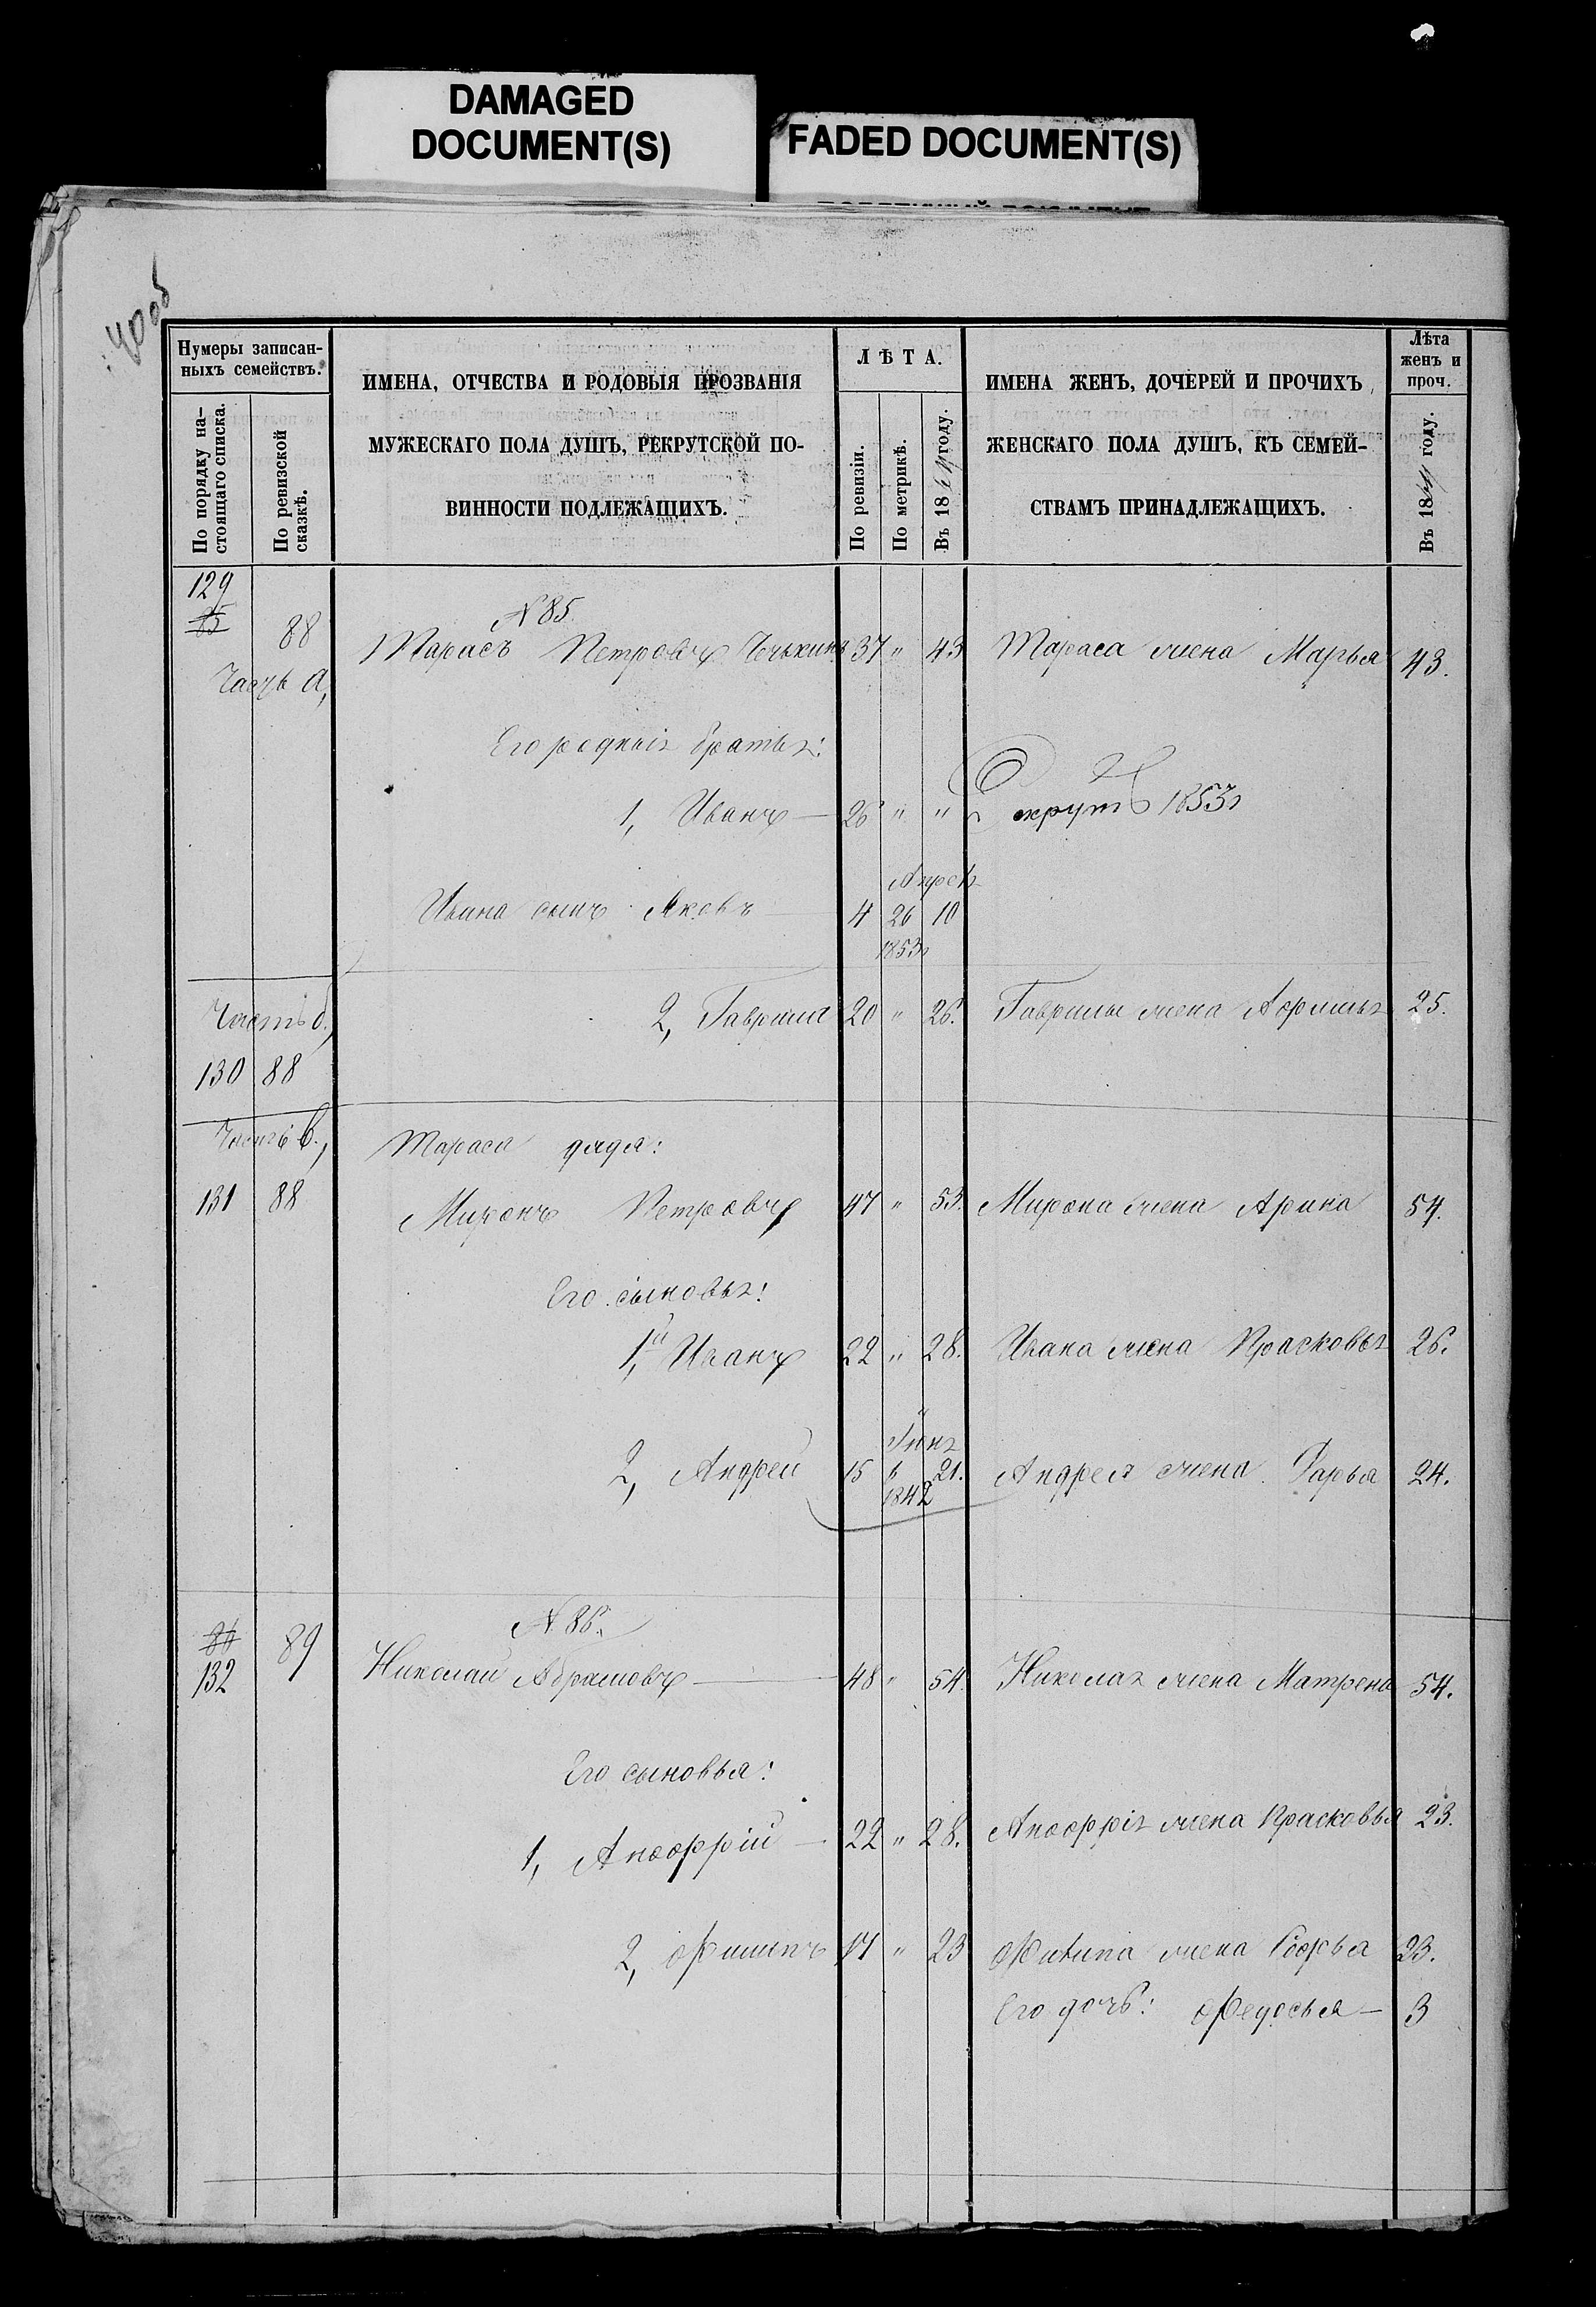 DAMAGED
DOCUMENT(S)
FADED DOCUMENT(S)
40об
Нумеры записан-
ныхъ семействъ.
По порядку на-
стоящаго списка.
По ревизской
сказкѣ.
ИМЕНА, ОТЧЕСТВА И РОДОВЫЯ ПРОЗВАНІЯ
МУЖЕСКАГО ПОЛА ДУШЪ, РЕКРУТСКОЙ ПО-
ВИННОСТИ ПОДЛЕЖАЩИХЪ.
ЛѢТА.
По ревизіи.
По метрикѣ.
Въ 18 году.
ИМЕНА ЖЕНЪ, ДОЧЕРЕЙ И ПРОЧИХЪ
ЖЕНСКАГО ПОЛА ДУШЪ, КЪ СЕМЕЙ-
СТВАМЪ ПРИНАДЛЕЖАЩИХЪ.
Лѣта
женъ и
проч.
Въ 18 году.
129
85 88
N 85.
Тарасъ Петровъ 37 " 43 Тараса жена Марья 43.
Часть а,
Его родныя братья:
1, Иванъ — 26 " " Рекрутъ 1853г
Ивана сынъ Яковъ 4 Апрѣля 26 1853г 10
Часть б,
130 88
2, Гаврила 20 " 26. Гаврилы жена 25.
Часть в,
Тараса дядя:
131 88
Миронъ Петровъ 47 " 53. Мирона жена Арина 54.
Его сыновья:
1й, Иванъ 22 " 28. Ивана жена Прасковья 26.
2, Андрей 15 Іюня 1842 21. Андрея жена Дарья 24.
86 89
132
N 86.
Николай Абрамовъ — 48 " 54. Николая жена Матрена 54.
Его сыновья:
1, Аноффрій — 22 " 28. Аноффрія жена Прасковья 23.
2, Филипъ 17 " 23 Филипа жена Софья 23.
Его дочь: Федосья — 3